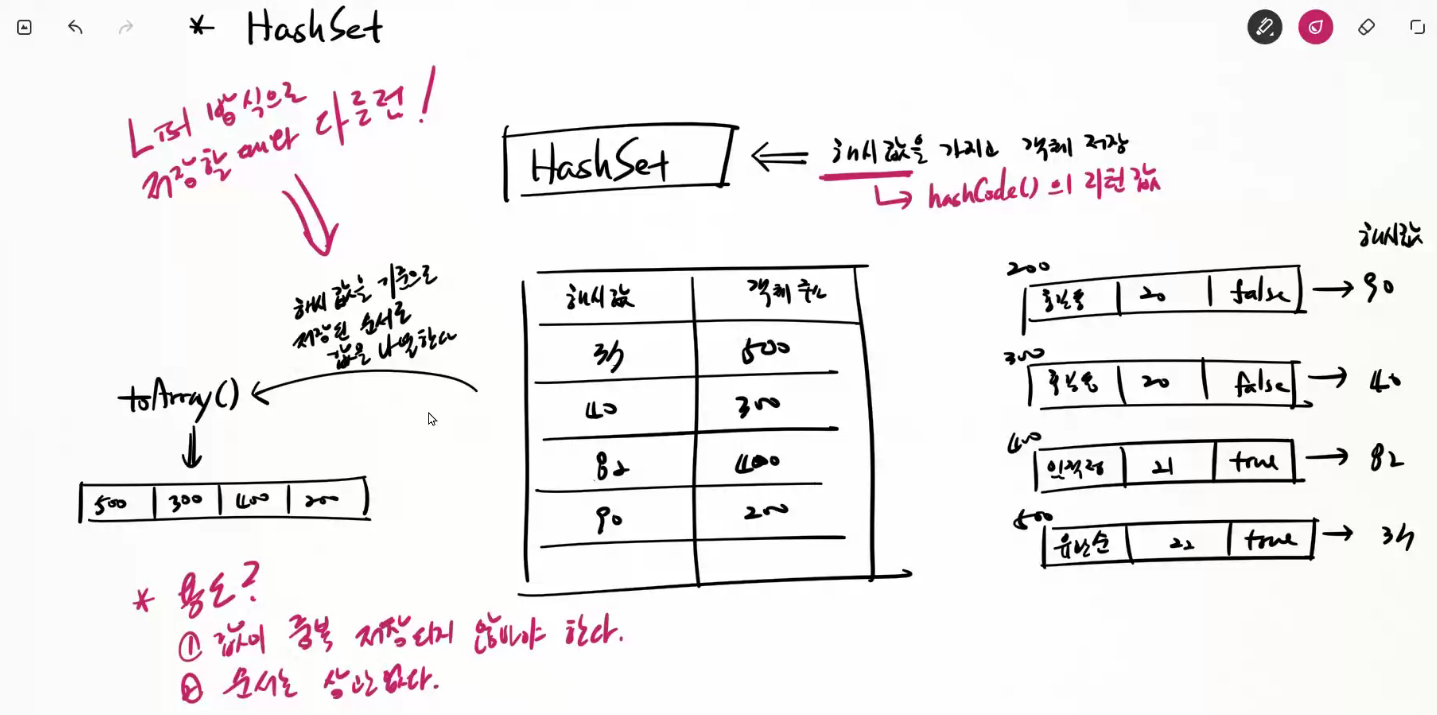 * HashSet
저장할 때와 다른편!
HashSet
⇐ 해시값을 가지고 객체 저장
↳ hashCode()의 리턴값
해시값을 기준으로
저장된 순서로
값을 나열한다
toArray()
500 300 400 200
해시값 객체 주소
35 500
40 300
82 400
90 200
해시값
200
홍길동 20 false → 90
300
홍길동 20 false → 40
400
임꺽정 21 true → 82
500
유관순 22 true → 35
* 용도?
① 값이 중복 저장되지 않아야 한다.
② 순서는 상관없다.